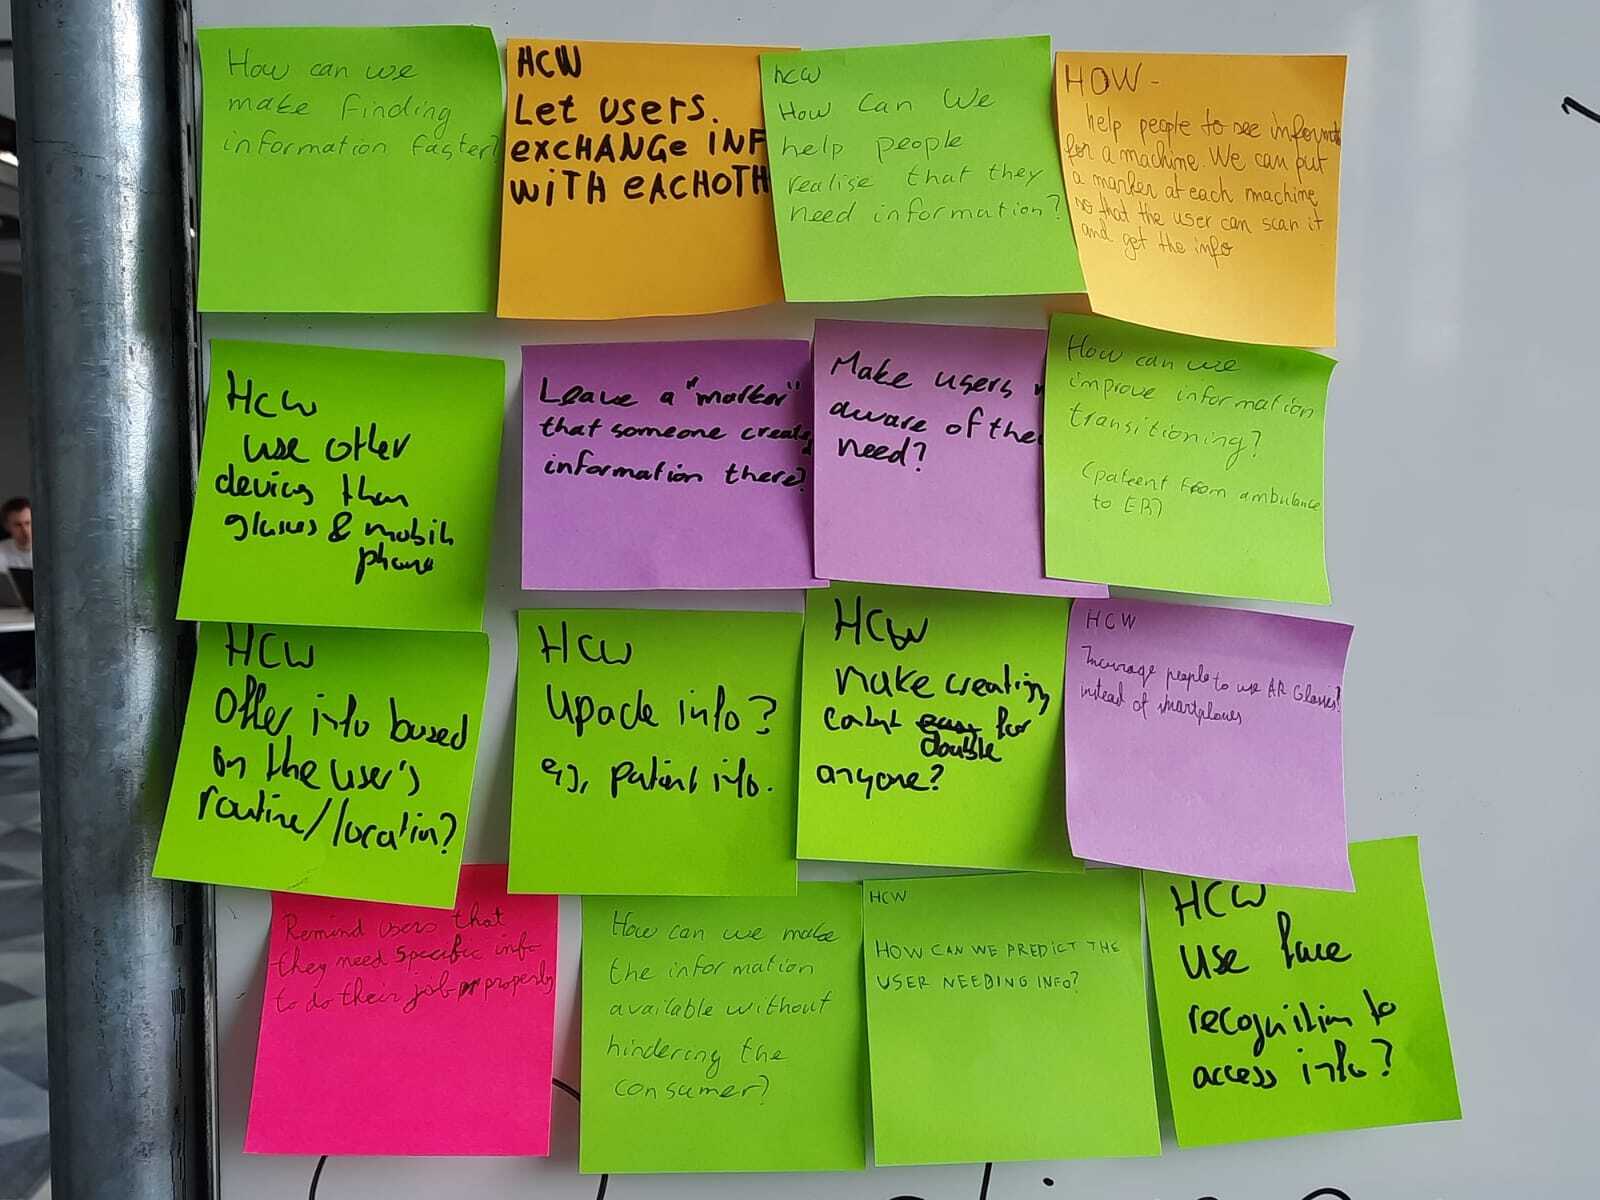 How can we
make finding
information faster?
HCW
Let users.
exCHANGe INF
WITH eACHOTH
hcw
How can we
help people
realise that they
need information?
HOW -
help people to see informat
for a machine. We can put
a marker at each machine
so that the user can scan it
and get the info
HCW
use other
devices than
glasses & mobile
phone
Leave a "marker"
that someone created
information there?
Make users
aware of the
need?
How can we
improve information
transitioning?
(patient from ambulance
to ER?
HCW
Offer info based
on the user's
routine/location?
HCW
Update info?
e.g. patient info.
HCW
make creating
for
double
anyone?
HCW
Encourage people to use AR Glasses?
instead of smartphones
Remind users that
they need specific info
to do their job properly
How can we make
the information
available without
hindering the
consumer?
HCW
HOW CAN WE PREDICT THE
USER NEEDING INFO?
HCW
use face
recognition to
access info?